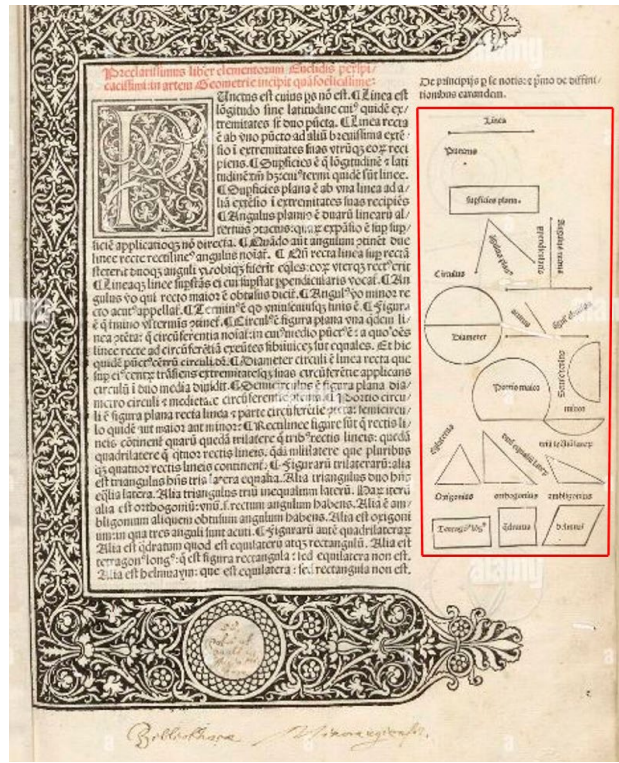 Preclarissimus liber elementorum Euclidis perspi/
cacissimi: in artem Geometrie incipit quāfoelicissime:
PUnctus est cuius ps nō est. ¶ Linea est
lōgitudo sine latitudine cui⁹ quidē ex/
tremitates st duo pūcta. ¶ Linea recta
ē ab vno pūcto ad aliū breuissima extē/
sio i extremitates suas vtrūqꝫ eoꝝ reci
piens. ¶ Supficies ē q̄ lōgitudinē ⁊ lati
tudinē tm̄ hꝫ: cui⁹ termi quidē sūt linee.
¶ Supficies plana ē ab vna linea ad a/
liā extēsio i extremitates suas recipiēs
¶ Angulus planus ē duarū linearū al/
ternus ꝯtactus: quaꝝ expāsio ē sup sup/
ficiē applicatioqꝫ nō directa. ¶ Quādo aut angulum ꝯtinēt due
linee recte rectiline⁹ angulus noiat̄. ¶ Qn̄ recta linea sup rectā
steterit duoqꝫ anguli vtrobiqꝫ fuerit eq̄les: eoꝝ vterqꝫ rect⁹ erit
¶ Lineaqꝫ linee supstās ei cui supstat ppendicularis vocat̄. ¶ An
gulus vo qui recto maior ē obtusus dicit̄. ¶ Angul⁹ vo minor re
cto acut⁹ appellat̄. ¶ Termin⁹ ē qd̄ vniuscuiusqꝫ finis ē. ¶ Figura
ē q̄ tmino vl terminis ꝯtinet̄. ¶ Circul⁹ ē figura plana vna qdem li/
nea ꝯtēta: q̄ circūferentia noiat̄: in cui⁹ medio pūct⁹ ē: a quo oēs
linee recte ad circūferētiā exeūtes sibiinuicē sūt equales. Et hic
quidē pūct⁹ cētrū circuli dr̄. ¶ Diameter circuli ē linea recta que
sup ei⁹ centꝝ trāsiens extremitatesqꝫ suas circūferētie applicans
circulū i duo media diuidit. ¶ Semicirculus ē figura plana dia/
metro circuli ⁊ medietate circūferentie ꝯtenta. ¶ Portio circu/
li ē figura plana recta linea ⁊ parte circūferētie ꝯtēta: semicircu/
lo quidē aut maior aut minor. ¶ Rectilinee figure sūt q̄ rectis li/
neis cōtinent quarū quedā trilatere q̄ trib⁹ rectis lineis: quedā
quadrilatere q̄ qtuor rectis lineis. qdā mltilatere que pluribus
qꝫ quatuor rectis lineis continent̄. ¶ Figurarū trilaterarū: alia
est triangulus hn̄s tria latera equalia. Alia triangulus duo hn̄s
eq̄lia latera. Alia triangulus triū inequalium laterū. Haꝝ iterū
alia est orthogoniū: vnū.s. rectum angulum habens. Alia ē am/
bligonium aliquem obtusum angulum habens. Alia est oxigoni
um: in qua tres anguli sunt acuti. ¶ Figurarū autē quadrilaterarū
Alia est q̄dratum quod est equilaterū atqꝫ rectangulū. Alia est
tetragon⁹ long⁹: q̄ est figura rectangula: sed equilatera non est.
Alia est helmuaym: que est equilatera: sed rectangula non est.
De principijs p se notis: ⁊ pmo de diffini/
tionibus earandem.
Linea
Punctus
supficies plana.
Circulus
Diameter
Portio maior
minor
Oxigonius
orthogonius
ambligonius
Tetragon⁹ lōg⁹
q̄dratus